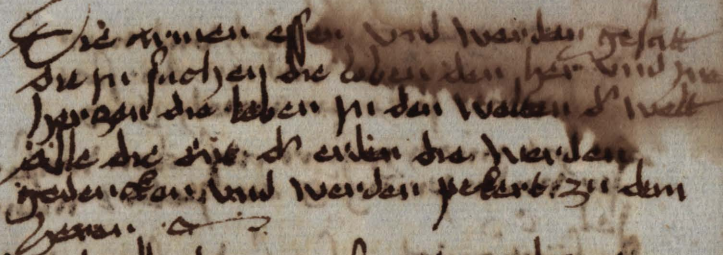 Die armen essen vnd werden gesatt
die jn suchen die loben den her vnd jre
herzen die leben jn den welten d' welt
Alle die ent d' erden die werden
gedencken vnd werden pekert zu dem
heren